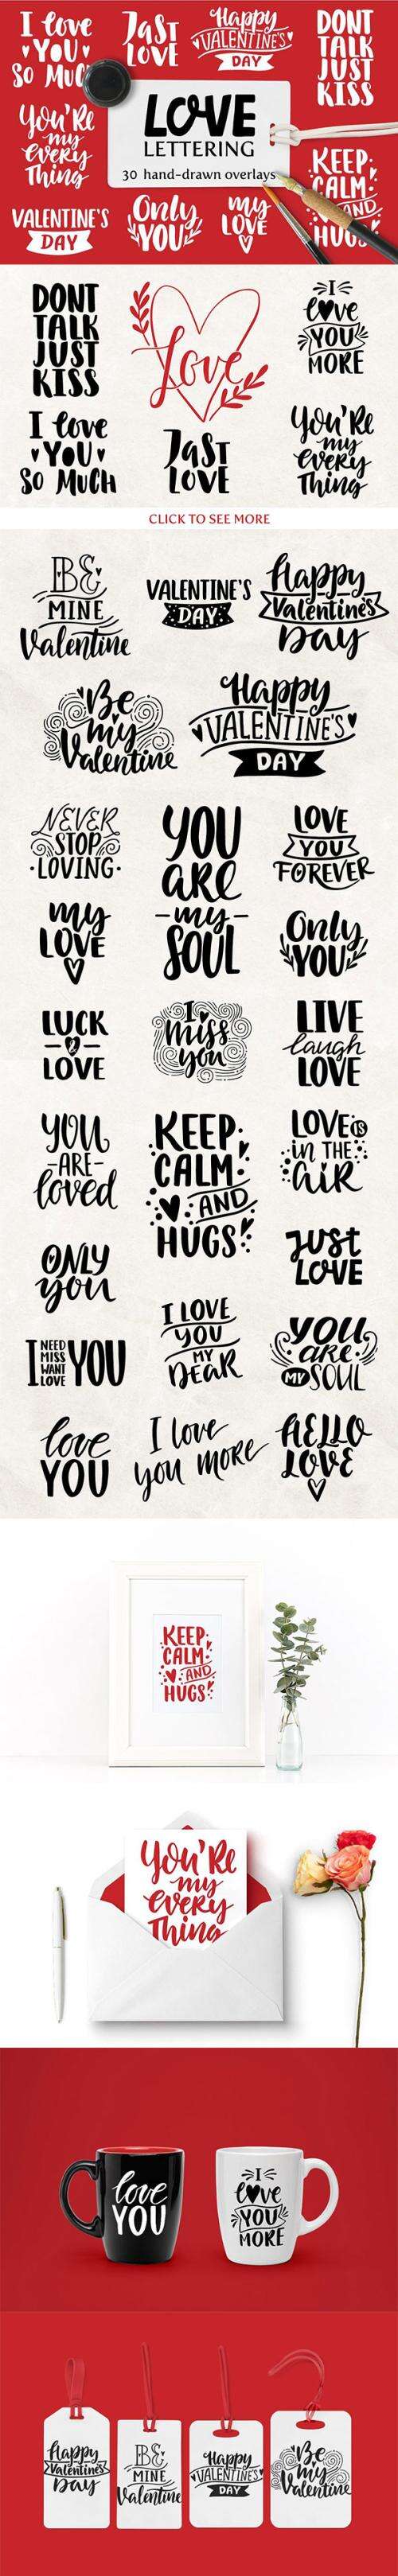 I love
YOU
SO MUC
JaST
LOVE
Happy
VALENTINE'S
DAY
DONT
TALK
JUST
KISS
You'Re
my
every
Thing
LOVE
LETTERING
30 hand-drawn overlays
KEEP
CALM
AND
HUGS
VALENTINE'S
DAY
Only
YOU
my
LOVE
DONT
TALK
JUST
KISS
Love
I
love
YOU
MORE
I love
YOU
SO MUCH
JaST
LOVE
You'Re
my
every
Thing
CLICK TO SEE MORE
BE
MINE
Valentine
VALENTINE'S
DAY
Happy
Valentine's
Day
Be
my
Valentine
Happy
VALENTINE'S
DAY
NEVER
STOP
LOVING
YOU
aRe
my
SOUL
LOVE
YOU
FOREVER
my
LOVE
Only
YOU
LUCK
&
LOVE
I
miss
you
LIVE
laugh
LOVE
YOU
ARE
loved
KEEP
CALM
AND
HUGS
LOVE IS
in THE
aiR
ONLY
you
Just
LOVE
I NEED MISS WANT LOVE YOU
I LOVE
YOU
MY
DeaR
you
are
MY SOUL
love
YOU
I love
you more
HELLO
LOVE
KEEP
CALM
AND
HUGS
You'Re
my
every
Thing
love
YOU
I
love
YOU
MORE
Happy
Valentine's
Day
BE
MINE
Valentine
Happy
VALENTINE'S
DAY
Be
my
Valentine